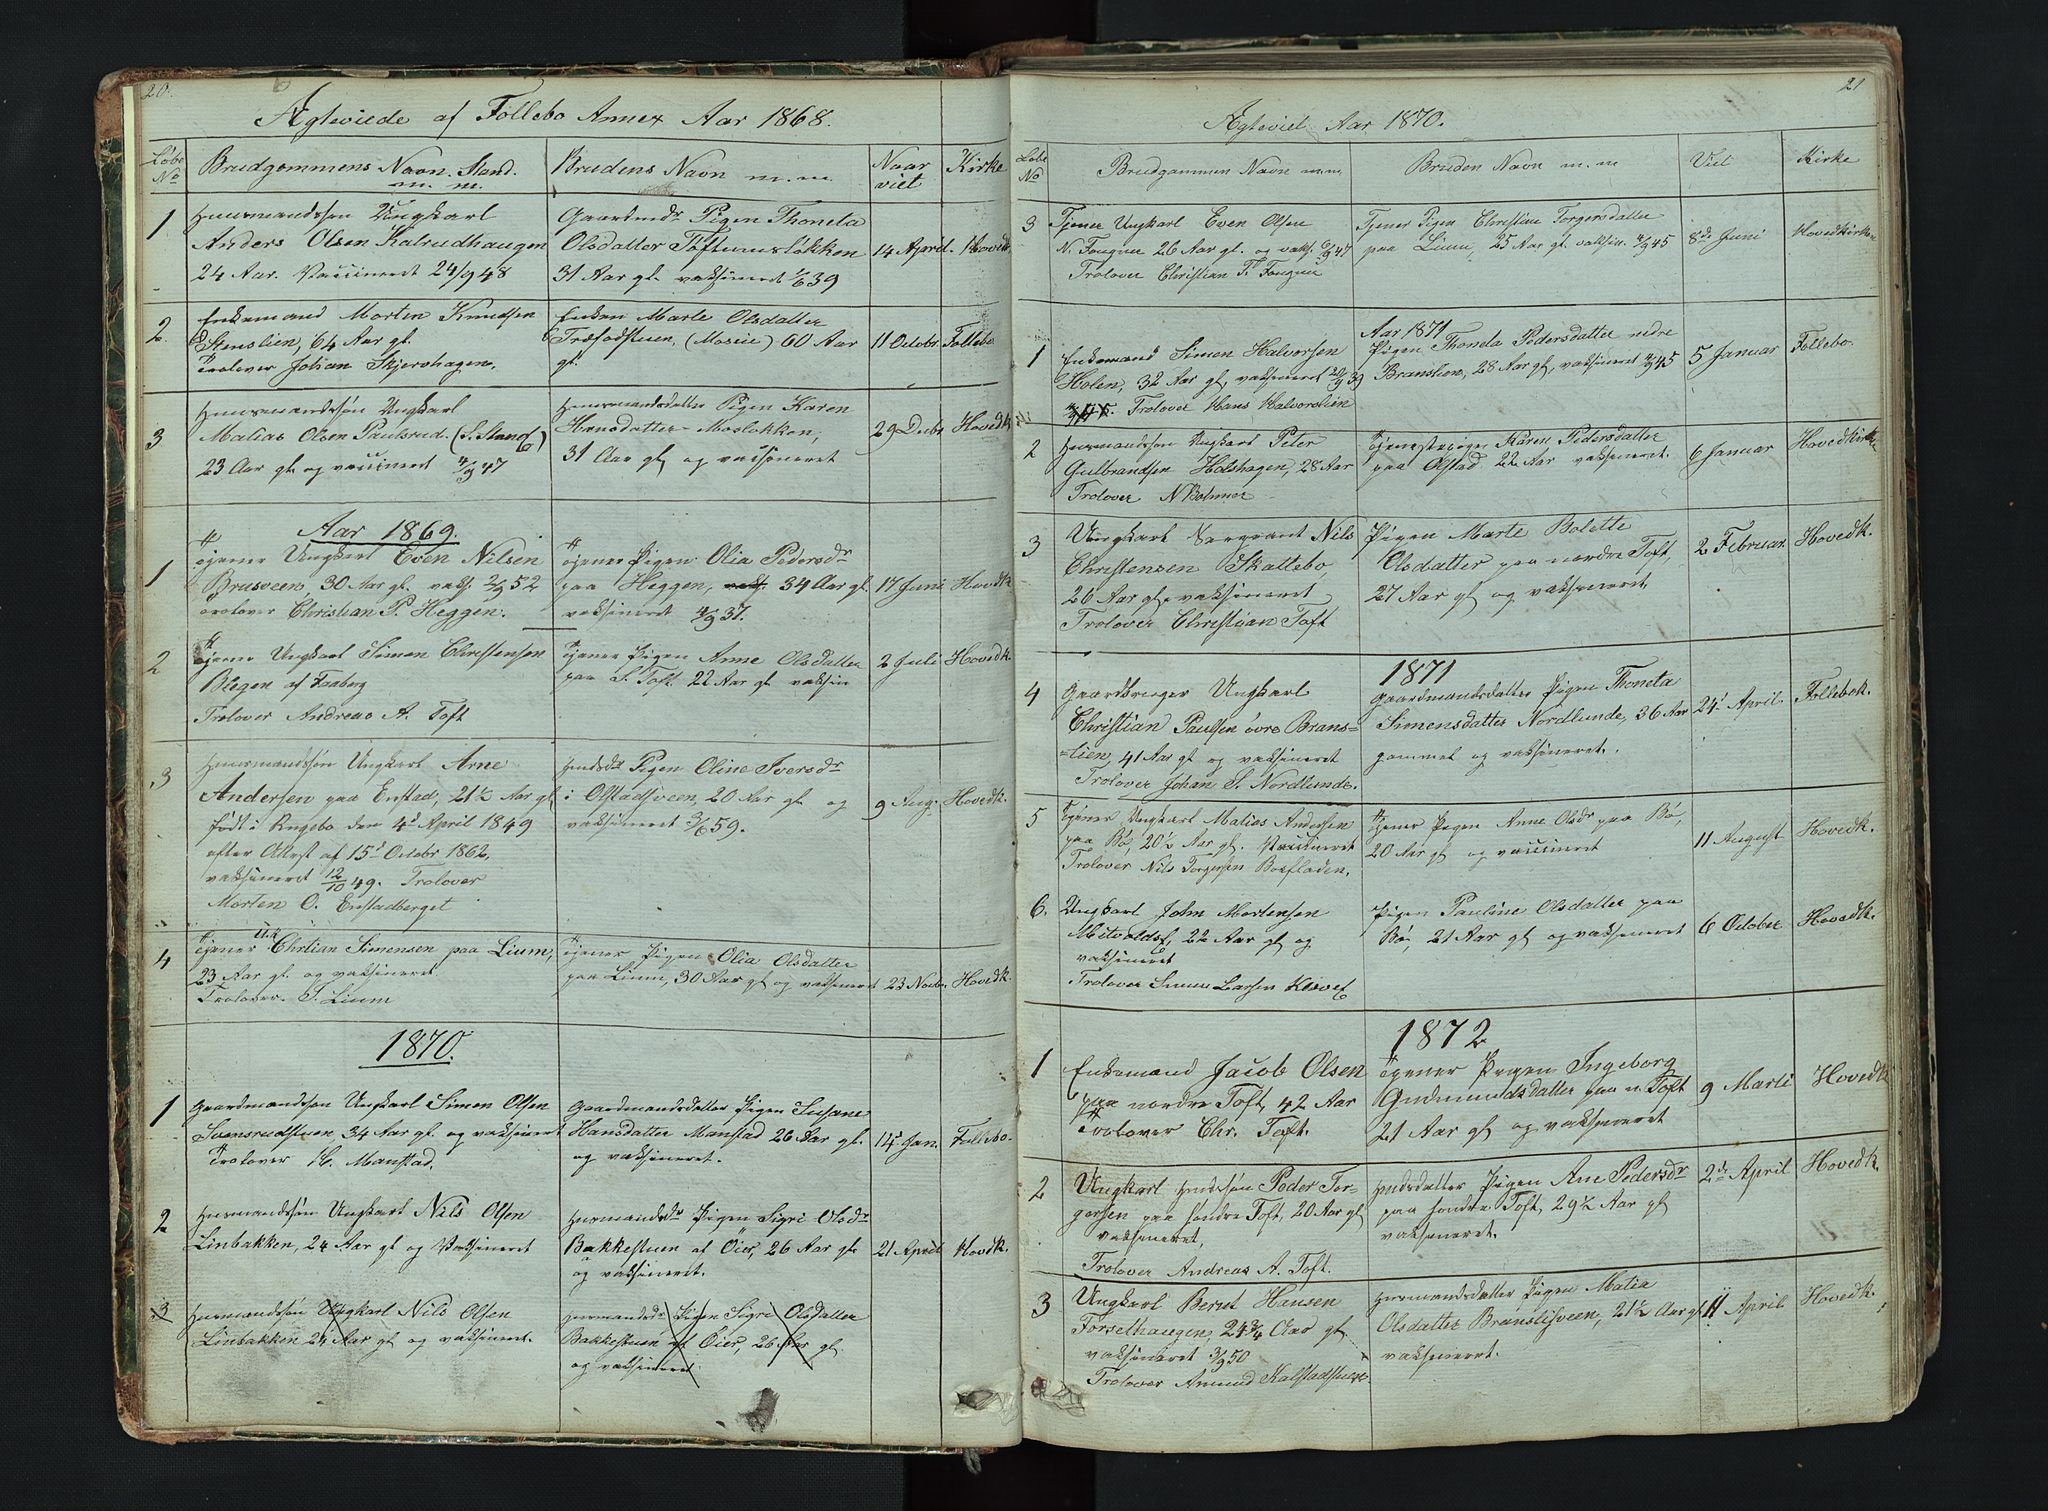 20.
Ægteviede af Follebo Annex Aar 1868.
Løbe No
Brudgommens Navn. Stand. m. m.
Brudens Navn m. m.
Naar viet
Kirke
1
Huusmandssøn Ungkarl
Anders Olsen Kalrudhaugen
24 Aar. Vaccineret 24/9 48
Gaardmdr Pigen Thoneta
Olsdatter Toftumsløkken
31 Aar gl. vaksineret 1/6 39
14 April.
Hovedk.
2.
Enkemand Morten Knudsen
Stenslien, 64 Aar gl.
Trolover Johan Skjershagen.
Enken Marte Olsdatter
60 Aar
gl.
11 Octobr
Follebo
3
Huusmandssøn Ungkarl
Matias Olsen Paulsrud.
23 Aar gl. og vaccineret 4/9 47
Huusmandsdatter Pigen Karen
Hansdatter Moslokken,
31 Aar gl. og vaksineret
29 Decbr
Hovedk
Aar 1869.
1
Tjener Ungkarl Even Nilsen
Brusveen, 30 Aar gl. vaks. 2/9 52
Trolover Christian P. Heggen.
Tjener Pigen Olia Pedersdr
paa Heggen, vaks. 34 Aar gl.
vaksineret 4/9 37.
17 Juni
Hovedk
2
Tjener Ungkarl Simen Christensen
Blegen af Faaberg
Trolover Andreas A. Toft
Tjener Pigen Anne Olsdatter
paa S. Toft. 22 Aar gl. vaksin
2 Juli
Hovedk.
3
Huusmandssøn Ungkarl Arne
Andersen paa Enstad, 21½ Aar gl.
født i Ringebo den 4d April 1849
efter Attest af 15d Octobr 1862,
vaksineret 12/10 49. Trolover
Morten O. Enstadberget
Husdr Pigen Oline Iversdr
i Olstadsveen, 20 Aar gl. og
vaksineret 3/6 59.
9 Aug.
Hovedk.
4
Tjener U.k. Chrtian Simensen paa Lium,
23 Aar gl. og vaksineret
Trolover. S. Lium
Tjener Pigen Olia Olsdatter
paa Lium, 30 Aar gl og vaksineret
23 Novbr.
Hovedk.
1870.
1
Gaardmandssøn Ungkarl Simon Olsen
Svensrudstuen, 34 Aar gl. og vaksineret
Trolover H. Manstad.
Gaardmandsdatter Pigen Susane
Hansdatter Manstad 26 Aar gl.
og vaksineret.
14d Jan.
Follebo.
2
Husmandssøn Ungkarl Nils Olsen
Linbakken, 24 Aar gl og Vaksineret
Husmandsdr Pigen Sigri Olsdr
Bakkestuen af Öier, 26 Aar gl.
og vaksineret.
21 April
Hovdk.
3
Husmandssøn Ungkarl Nils Olsen
Linbakken 24 Aar gl og vaksineret.
Husmandsdr Pigen Sigri Olsdatter
Bakkestuen af Öier, 26 Aar gl.
og vaksineret
21
Ægteviet Aar 1870.
Løbe No
Brudgommen Navn m.m.
Bruden Navn m. m
Viet
Kirke
3
Tjener Ungkarl Even Olsen
N. Fougner 26 Aar gl. og vaks. 6/9 47
Trolover Christian T. Fougner
Tjener Pigen Christine Torgersdatter
paa Lium, 25 Aar gl. vaksin. 4/9 45
8de Juni
Hovedkirke
Aar 1871
1
Enkemand Simen Halvorsen
Holen, 32 Aar gl, vaksineret 20/9 39
Trolover Hans Halvorslien
Pigen Thoneta Pedersdatter nedre
Branslien, 28 Aar gl, vaksineret 4/9 45
5 Januar
Follebo.
2
Husmandssøn Ungkarl Peter
Gulbrandsen Holshagen, 28 Aar
Trolover N Bolmer
Tjenestepigen Karen Pedersdatter
paa Olstad 22 Aar vaksineret.
6 Januar
Hovedkirk
3
Ungkarl Sergeant Nils
Christensen Skattebo,
26 Aar gl. vaksineret
Trolover Christian Toft
Pigen Marte Bolette
Olsdatter paa nordre Toft,
27 Aar gl og vaksineret
2 Februar.
Hovedk.
1871
4
Gaardbruger Ungkarl
Christian Paulsen övre Brans-
=lien, 41 Aar gl og vaksineret
Trolover Johan S. Nordlunde.
Gaardmandsdatter Pigen Thoneta
Simensdatter Nordlunde, 36 Aar
gammel og vaksineret.
24d April.
Follebok.
5
Tjener Ungkarl Matias Andersen
paa Bø, 20½ Aar gl. Vaccineret
Trolover Nils Torgersen Bøefladen.
Tjener Pigen Anne Olsdr paa Bø,
20 Aar gl og vaccineret
11 August
Hovedk.
6.
Ungkarl John Mortensen
22 Aar gl og
vaksineret
Trolover Simen Larsen
Pigen Pauline Olsdatter paa
Bø, 21 Aar gl og vaksineret
6 October
Hovedk.
1872
1
Enkemand Jacob Olsen
paa nordre Toft, 42 Aar
Trolover Chr. Toft.
Tjener Pigen Ingeborg
Gudmundsdatter paa n. Toft
21 Aar gl og vaksineret
9 Marti
Hovedk
2
Ungkarl Husssøn Peder Tor-
gersen paa søndre Toft, 20 Aar gl
vaksineret,
Trolover Andreas A. Toft.
Husdsdatter Pigen Ane Pedersdr
paa søndre Toft, 29½ Aar gl
vaksineret.
2de April
Hovedk.
3
Ungkarl Bernt Hansen
Forsethaugen, 24¾ Aar gl.
vaksineret 3/9 50
Trolover Amund Kalstadstuen
Husmandsdatter Pigen Matia
Olsdatter Branslisveen, 21½ Aar gl
vaksineret.
11 April
Hovedk.